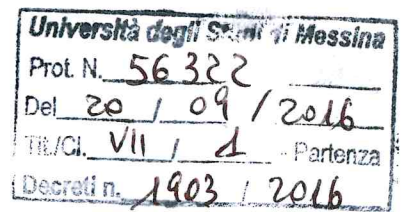 Università degli Studi di Messina
Prot. N. 56322
Del 20 / 09 / 2016
Tit./Cl. VII / 1 - Partenza
Decreti n. 1903 / 2016